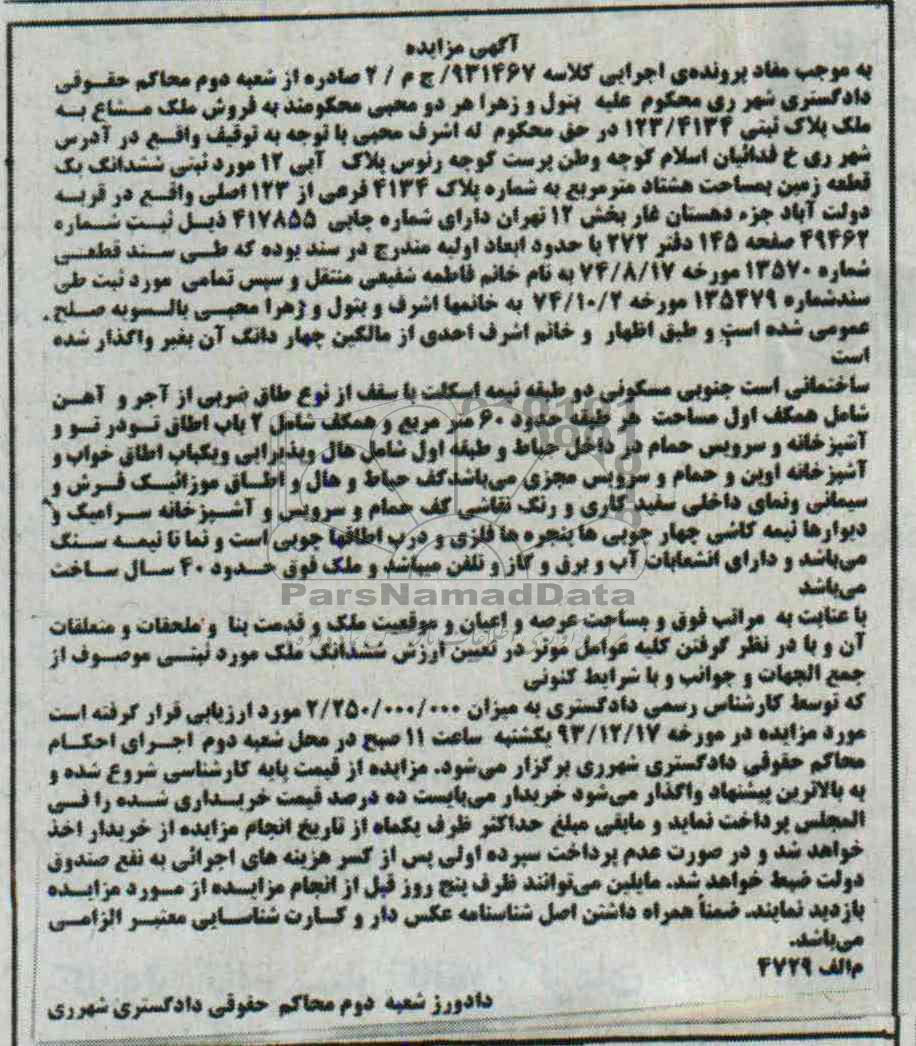 آگهی مزایده
به موجب مفاد پرونده‌ی اجرایی کلاسه ۹۳۱۴۶۷/ج م / ۲ صادره از شعبه دوم محاکم حقوقی
دادگستری شهر ری محکوم علیه بتول و زهرا هر دو محبی محکومند به فروش ملک مشاع به
ملک پلاک ثبتی ۱۲۳/۴۱۳۴ در حق محکوم له اشرف محبی با توجه به توقیف واقع در آدرس
شهر ری خ فدائیان اسلام کوچه وطن پرست کوچه رئوس پلاک آبی ۱۲ مورد ثبتی ششدانگ یک
قطعه زمین بمساحت هشتاد مترمربع به شماره پلاک ۴۱۳۴ فرعی از ۱۲۳ اصلی واقع در قریه
دولت آباد جزء دهستان غار بخش ۱۲ تهران دارای شماره چاپی ۴۱۷۸۵۵ ذیل ثبت شماره
۴۹۴۶۲ صفحه ۱۴۵ دفتر ۲۷۲ با حدود ابعاد اولیه مندرج در سند بوده که طی سند قطعی
شماره ۱۳۵۷۰ مورخه ۷۴/۸/۱۷ به نام خانم فاطمه شفیعی منتقل و سپس تمامی مورد ثبت طی
سندشماره ۱۳۵۴۷۹ مورخه ۷۴/۱۰/۲ به خانمها اشرف و بتول و زهرا محبی بالسویه صلح
عمومی شده است و طبق اظهار و خانم اشرف احدی از مالکین چهار دانگ آن بغیر واگذار شده
است
ساختمانی است جنوبی مسکونی دو طبقه نیمه اسکلت با سقف از نوع طاق ضربی از آجر و آهن
شامل همکف اول مساحت هر طبقه حدود ۶۰ متر مربع و همکف شامل ۲ باب اطاق تودر تو و
آشپزخانه و سرویس حمام در داخل حیاط و طبقه اول شامل هال وپذیرایی ویکباب اطاق خواب و
آشپزخانه اوپن و حمام و سرویس مجزی می‌باشدکف حیاط و هال و اطاق موزائیک فرش و
سیمانی ونمای داخلی سفید کاری و رنگ نقاشی کف حمام و سرویس و آشپزخانه سرامیک و
دیوارها نیمه کاشی چهار چوبی ها پنجره ها فلزی و درب اطاقها چوبی است و نما تا نیمه سنگ
می‌باشد و دارای انشعابات آب و برق و گاز و تلفن میباشد و ملک فوق حدود ۴۰ سال ساخت
می‌باشد
ParsNamadData
با عنایت به مراتب فوق و مساحت عرصه و اعیان و موقعیت ملک و قدمت بنا و ملحقات و متعلقات
آن و با در نظر گرفتن کلیه عوامل موثر در تعیین ارزش ششدانگ ملک مورد ثبتی موصوف از
جمع الجهات و جوانب و با شرایط کنونی
که توسط کارشناس رسمی دادگستری به میزان ۲/۲۵۰/۰۰۰/۰۰۰ مورد ارزیابی قرار گرفته است
مورد مزایده در مورخه ۹۳/۱۲/۱۷ یکشنبه ساعت ۱۱ صبح در محل شعبه دوم اجرای احکام
محاکم حقوقی دادگستری شهرری برگزار می‌شود. مزایده از قیمت پایه کارشناسی شروع شده و
به بالاترین پیشنهاد واگذار می‌شود خریدار می‌بایست ده درصد قیمت خریداری شده را فی
المجلس پرداخت نماید و مابقی مبلغ حداکثر ظرف یکماه از تاریخ انجام مزایده از خریدار اخذ
خواهد شد و در صورت عدم پرداخت سپرده اولی پس از کسر هزینه های اجرائی به نفع صندوق
دولت ضبط خواهد شد. مایلین می‌توانند ظرف پنج روز قبل از انجام مزایده از مورد مزایده
بازدید نمایند. ضمناً همراه داشتن اصل شناسنامه عکس دار و کارت شناسایی معتبر الزامی
می‌باشد.
م‌الف ۴۷۲۹
دادورز شعبه دوم محاکم حقوقی دادگستری شهرری